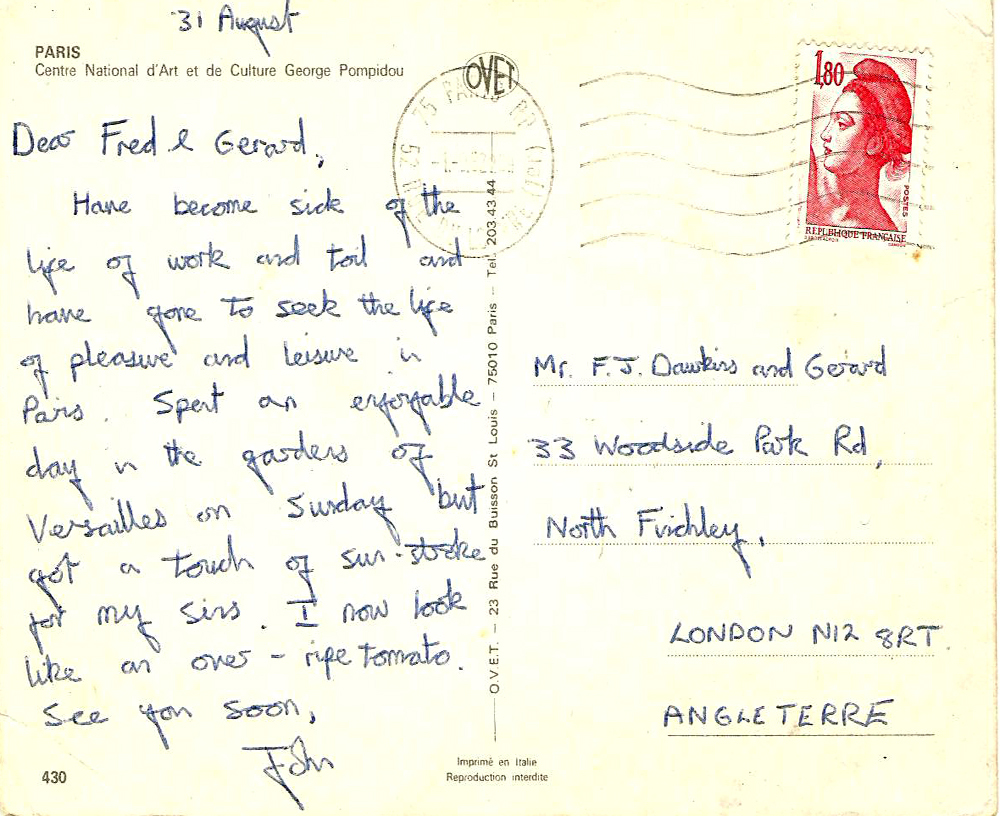 31 August
PARIS
Centre National d'Art et de Culture George Pompidou
Dear Fred & Gerard,
Have become sick of the
life of work and toil and
have gone to seek the life
of pleasure and leisure in
Paris. Spent an enjoyable
day in the gardens of
Versailles on Sunday but
got a touch of sun-stroke
for my sins. I now look
like an over-ripe tomato.
See you soon,
John
430
OVET
75 PARIS
O.V.E.T. — 23 Rue du Buisson St Louis — 75010 Paris — Tel. 203.43.44
Imprimé en Italie
Reproduction interdite
1,80
POSTES
REPUBLIQUE FRANÇAISE
Mr. F.J. Dawkins and Gerard
33 Woodside Park Rd,
North Finchley,
LONDON N12 8RT
ANGLETERRE